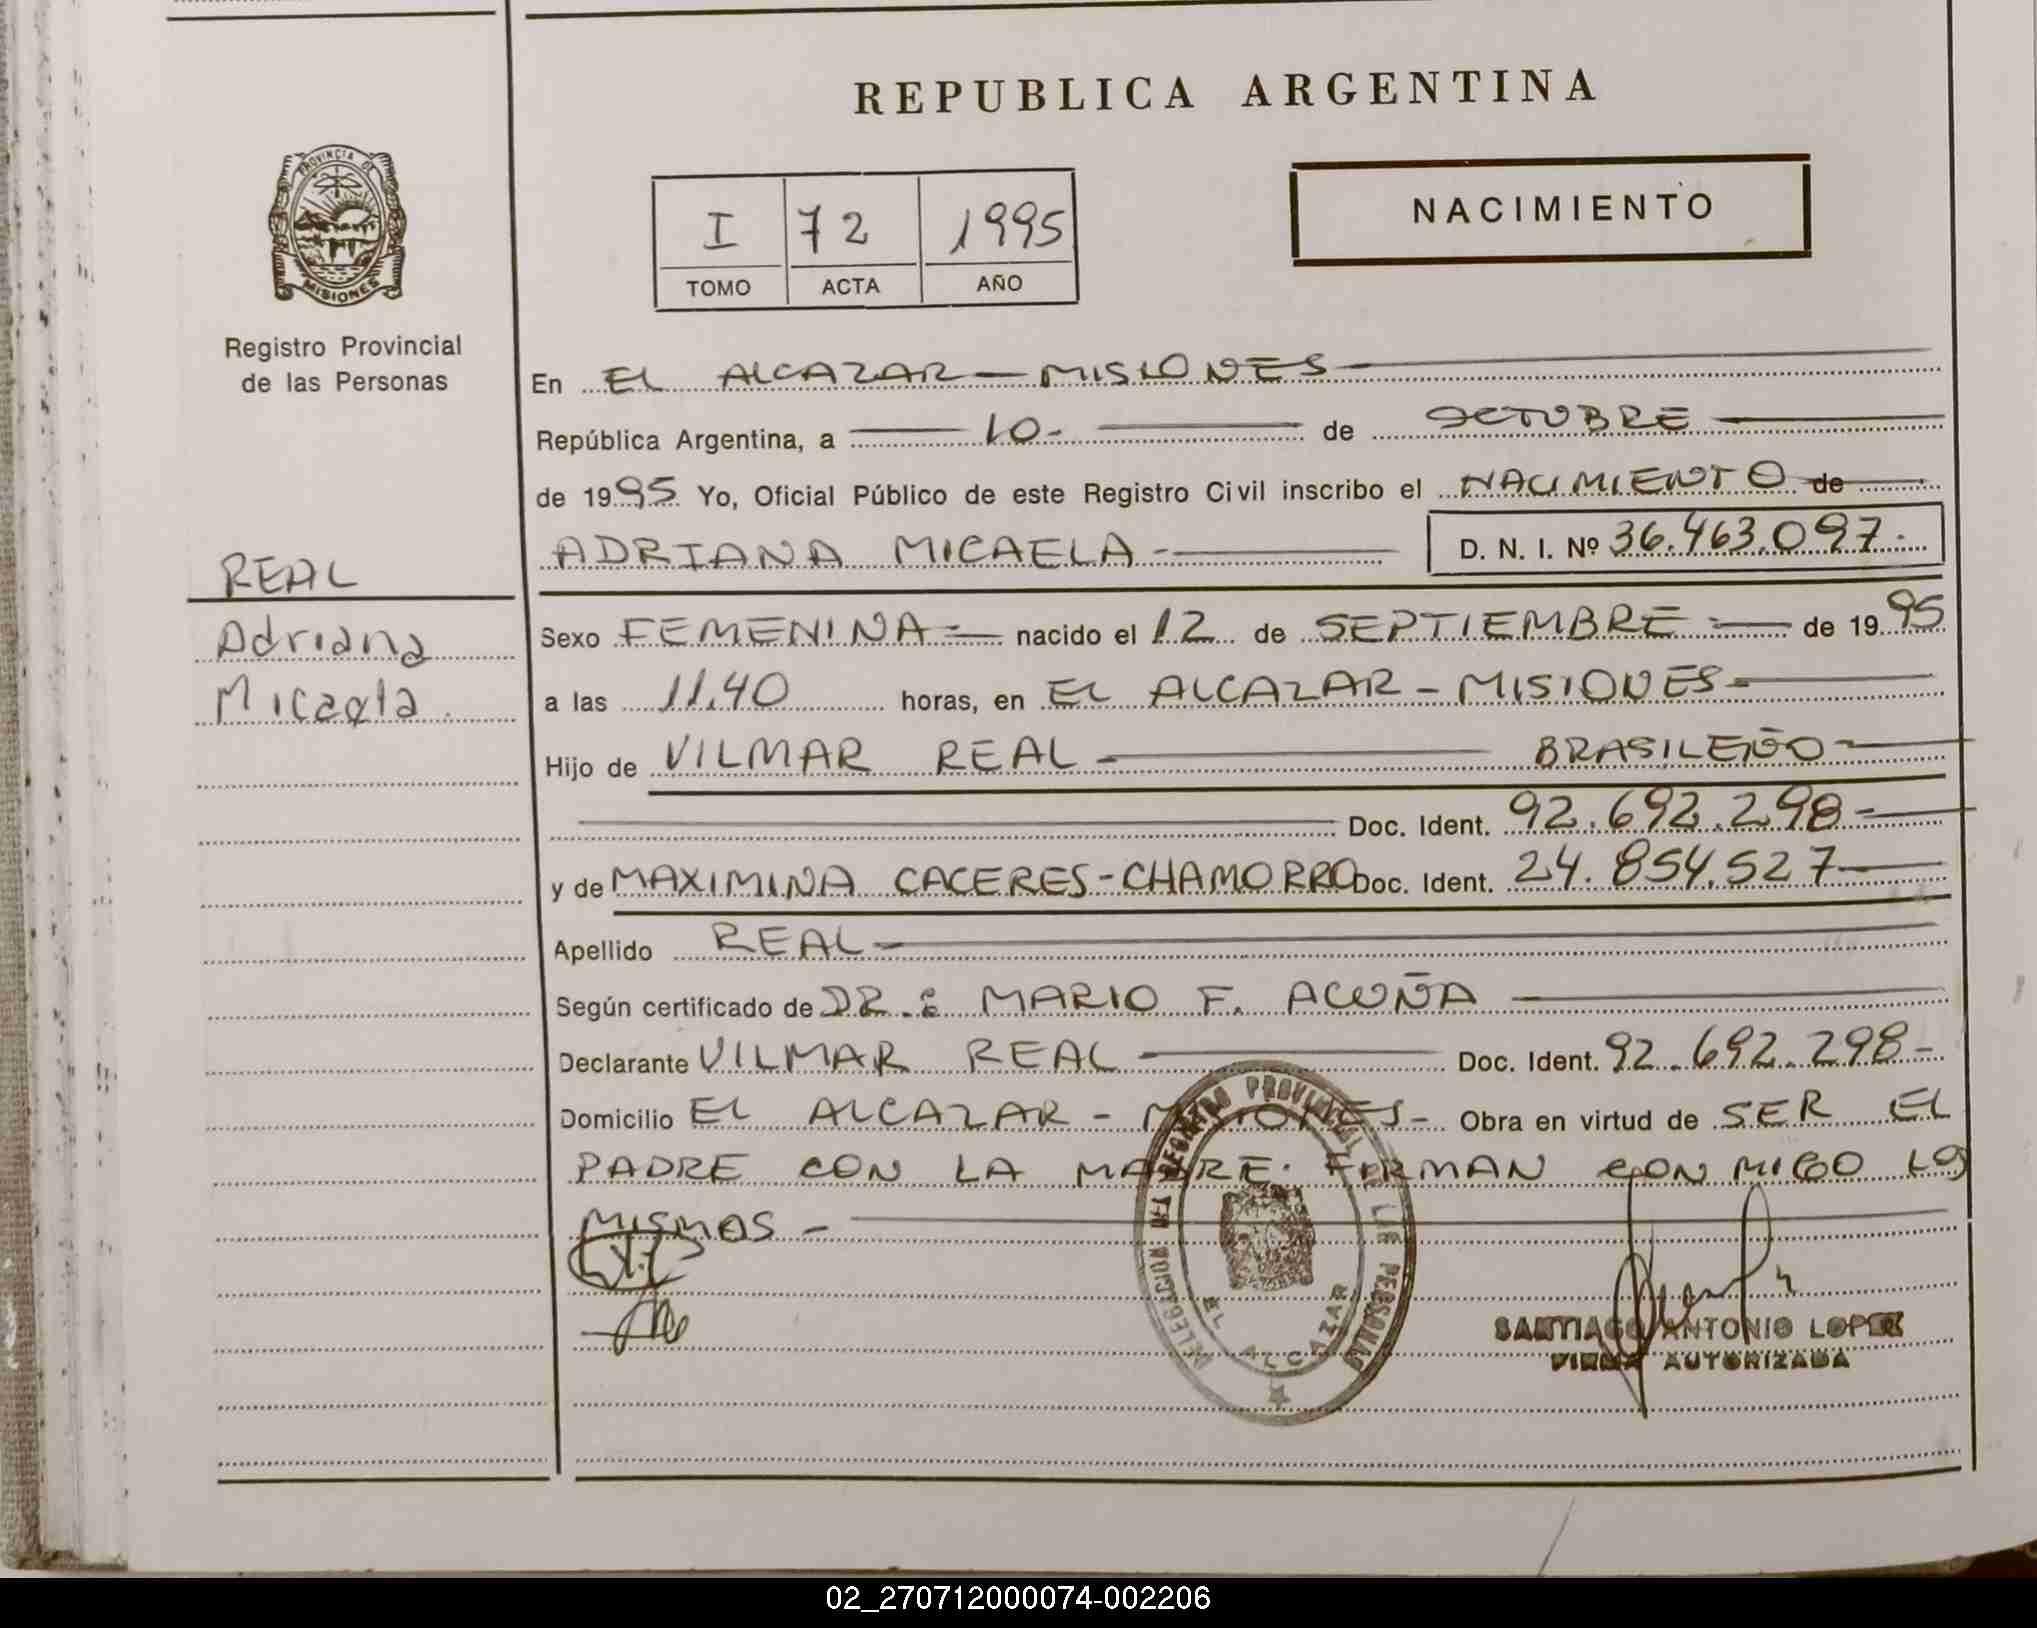 REPUBLICA ARGENTINA
PROVINCIA DE
MISIONES
Registro Provincial
de las Personas
NACIMIENTO
I 72 1995
TOMO ACTA AÑO
En EL ALCAZAR - MISIONES
República Argentina, a 10- de OCTUBRE
de 1995 Yo, Oficial Público de este Registro Civil inscribo el NACIMIENTO de
ADRIANA MICAELA - D. N. I. Nº 36.463.097.
REAL
Adriana
Micaela
Sexo FEMENINA - nacido el 12 de SEPTIEMBRE - de 1995
a las 11,40 horas, en EL ALCAZAR - MISIONES -
Hijo de VILMAR REAL - BRASILEÑO -
Doc. Ident. 92.692.298 -
y de MAXIMINA CACERES-CHAMORRO Doc. Ident. 24.854.527 -
Apellido REAL -
Según certificado de DR.: MARIO F. ACUÑA
Declarante VILMAR REAL - Doc. Ident. 92.692.298 -
Domicilio EL ALCAZAR - MISIONES - Obra en virtud de SER EL
PADRE CON LA MADRE. FIRMAN CON MIGO LOS
MISMOS -
DELEGACION REGISTRO PROVINCIAL DE LAS PERSONAS
EL ALCAZAR
SANTIAGO ANTONIO LOPEZ
FIRMA AUTORIZADA
02_270712000074-002206